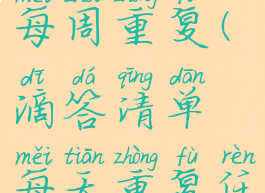 每周重复(
dī dá qīng dān
滴答清单
měi tiān zhòng fù rèn
每天重复任